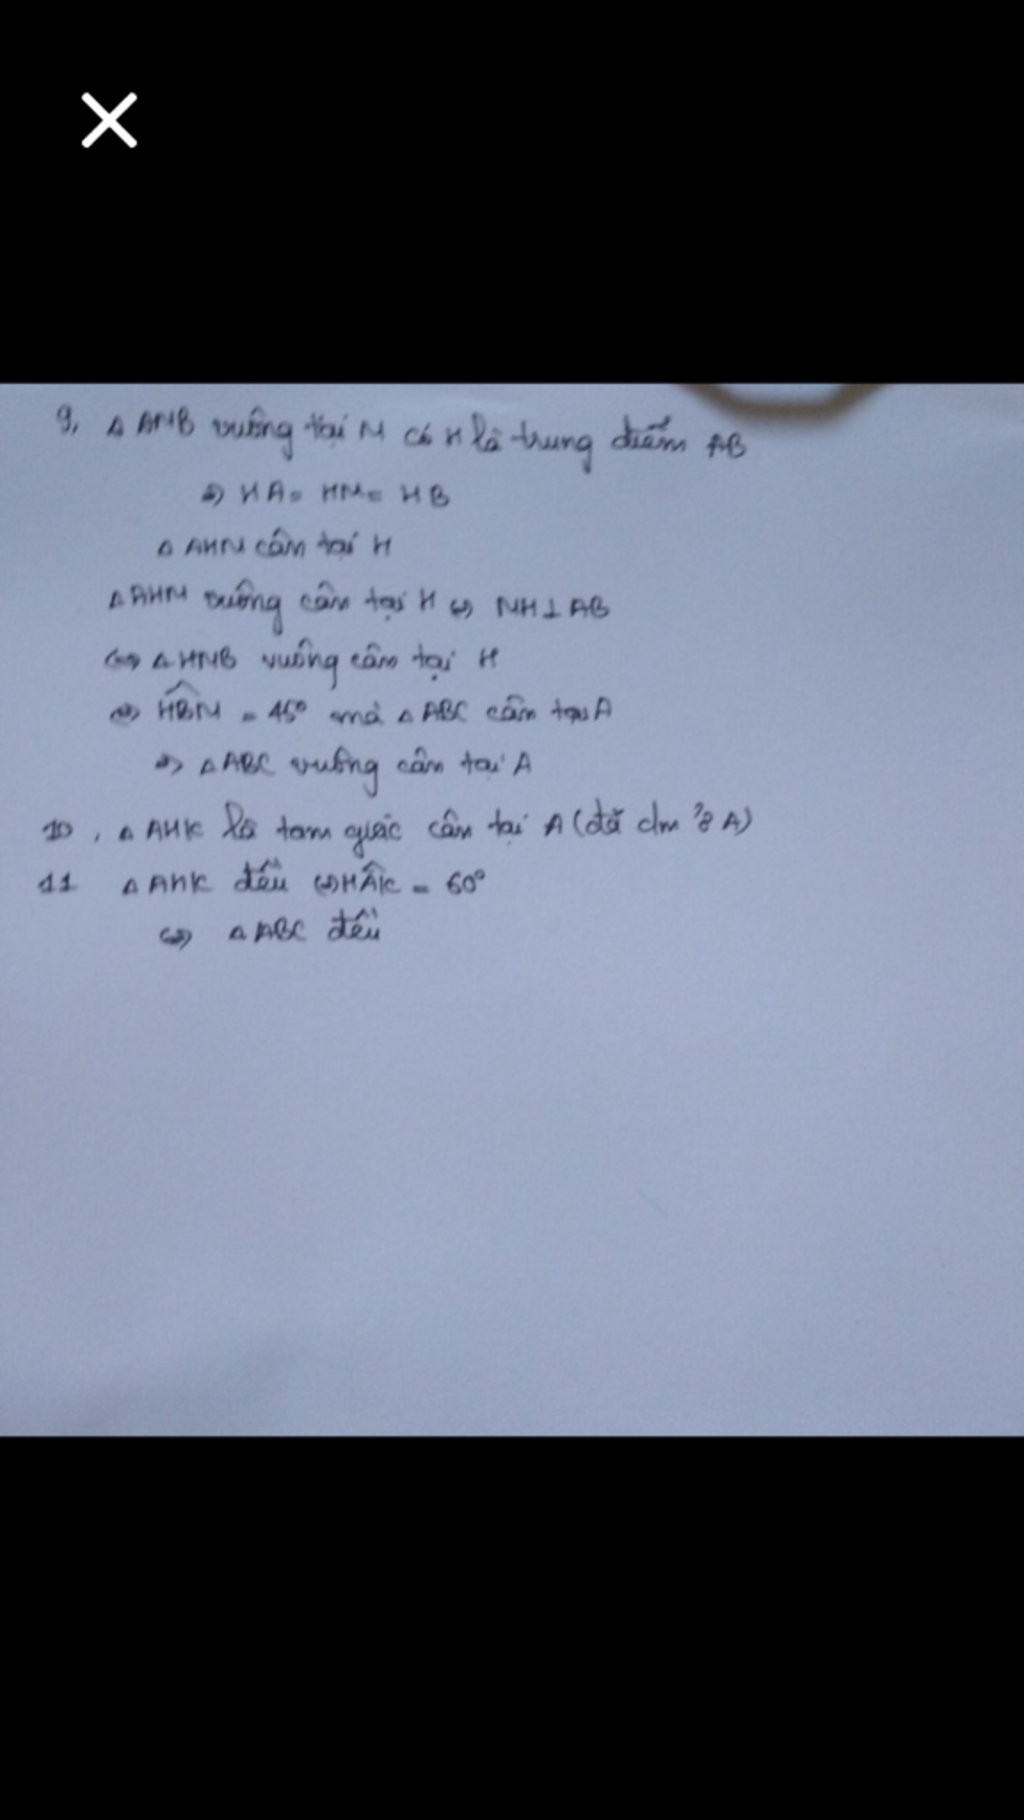 9, △ AMB vuông tại M có H là trung điểm AB
=> HA = HM = HB
△ AHM cân tại H
△ AHM vuông cân tại H <=> MH ⊥ AB
<=> △ HMB vuông cân tại H
<=> HBM̂ = 45° mà △ ABC cân tại A
=> △ ABC vuông cân tại A
10, △ AHK là tam giác cân tại A (đã cm ở A)
11 △ AHK đều <=> HÂK = 60°
<=> △ ABC đều